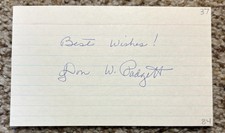 37
Best Wishes!
Don W. Padgett
84